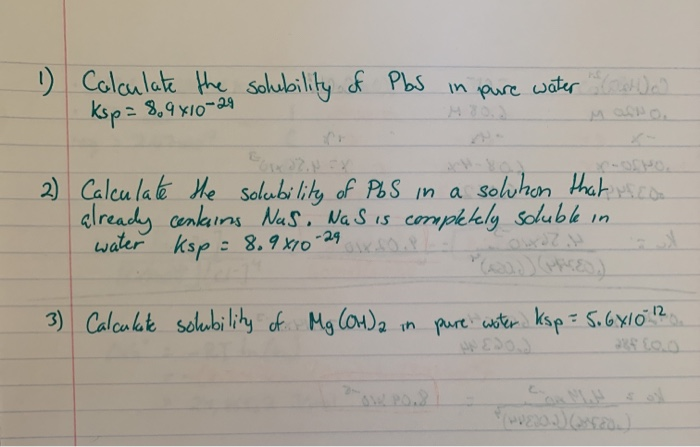 1) Calculate the solubility of PbS in pure water
Ksp = 8.9x10⁻²⁹
2) Calculate the solubility of PbS in a solution that
already contains NaS. NaS is completely soluble in
water Ksp = 8.9x10⁻²⁹
3) Calculate solubility of Mg(OH)₂ in pure water Ksp = 5.6x10⁻¹²